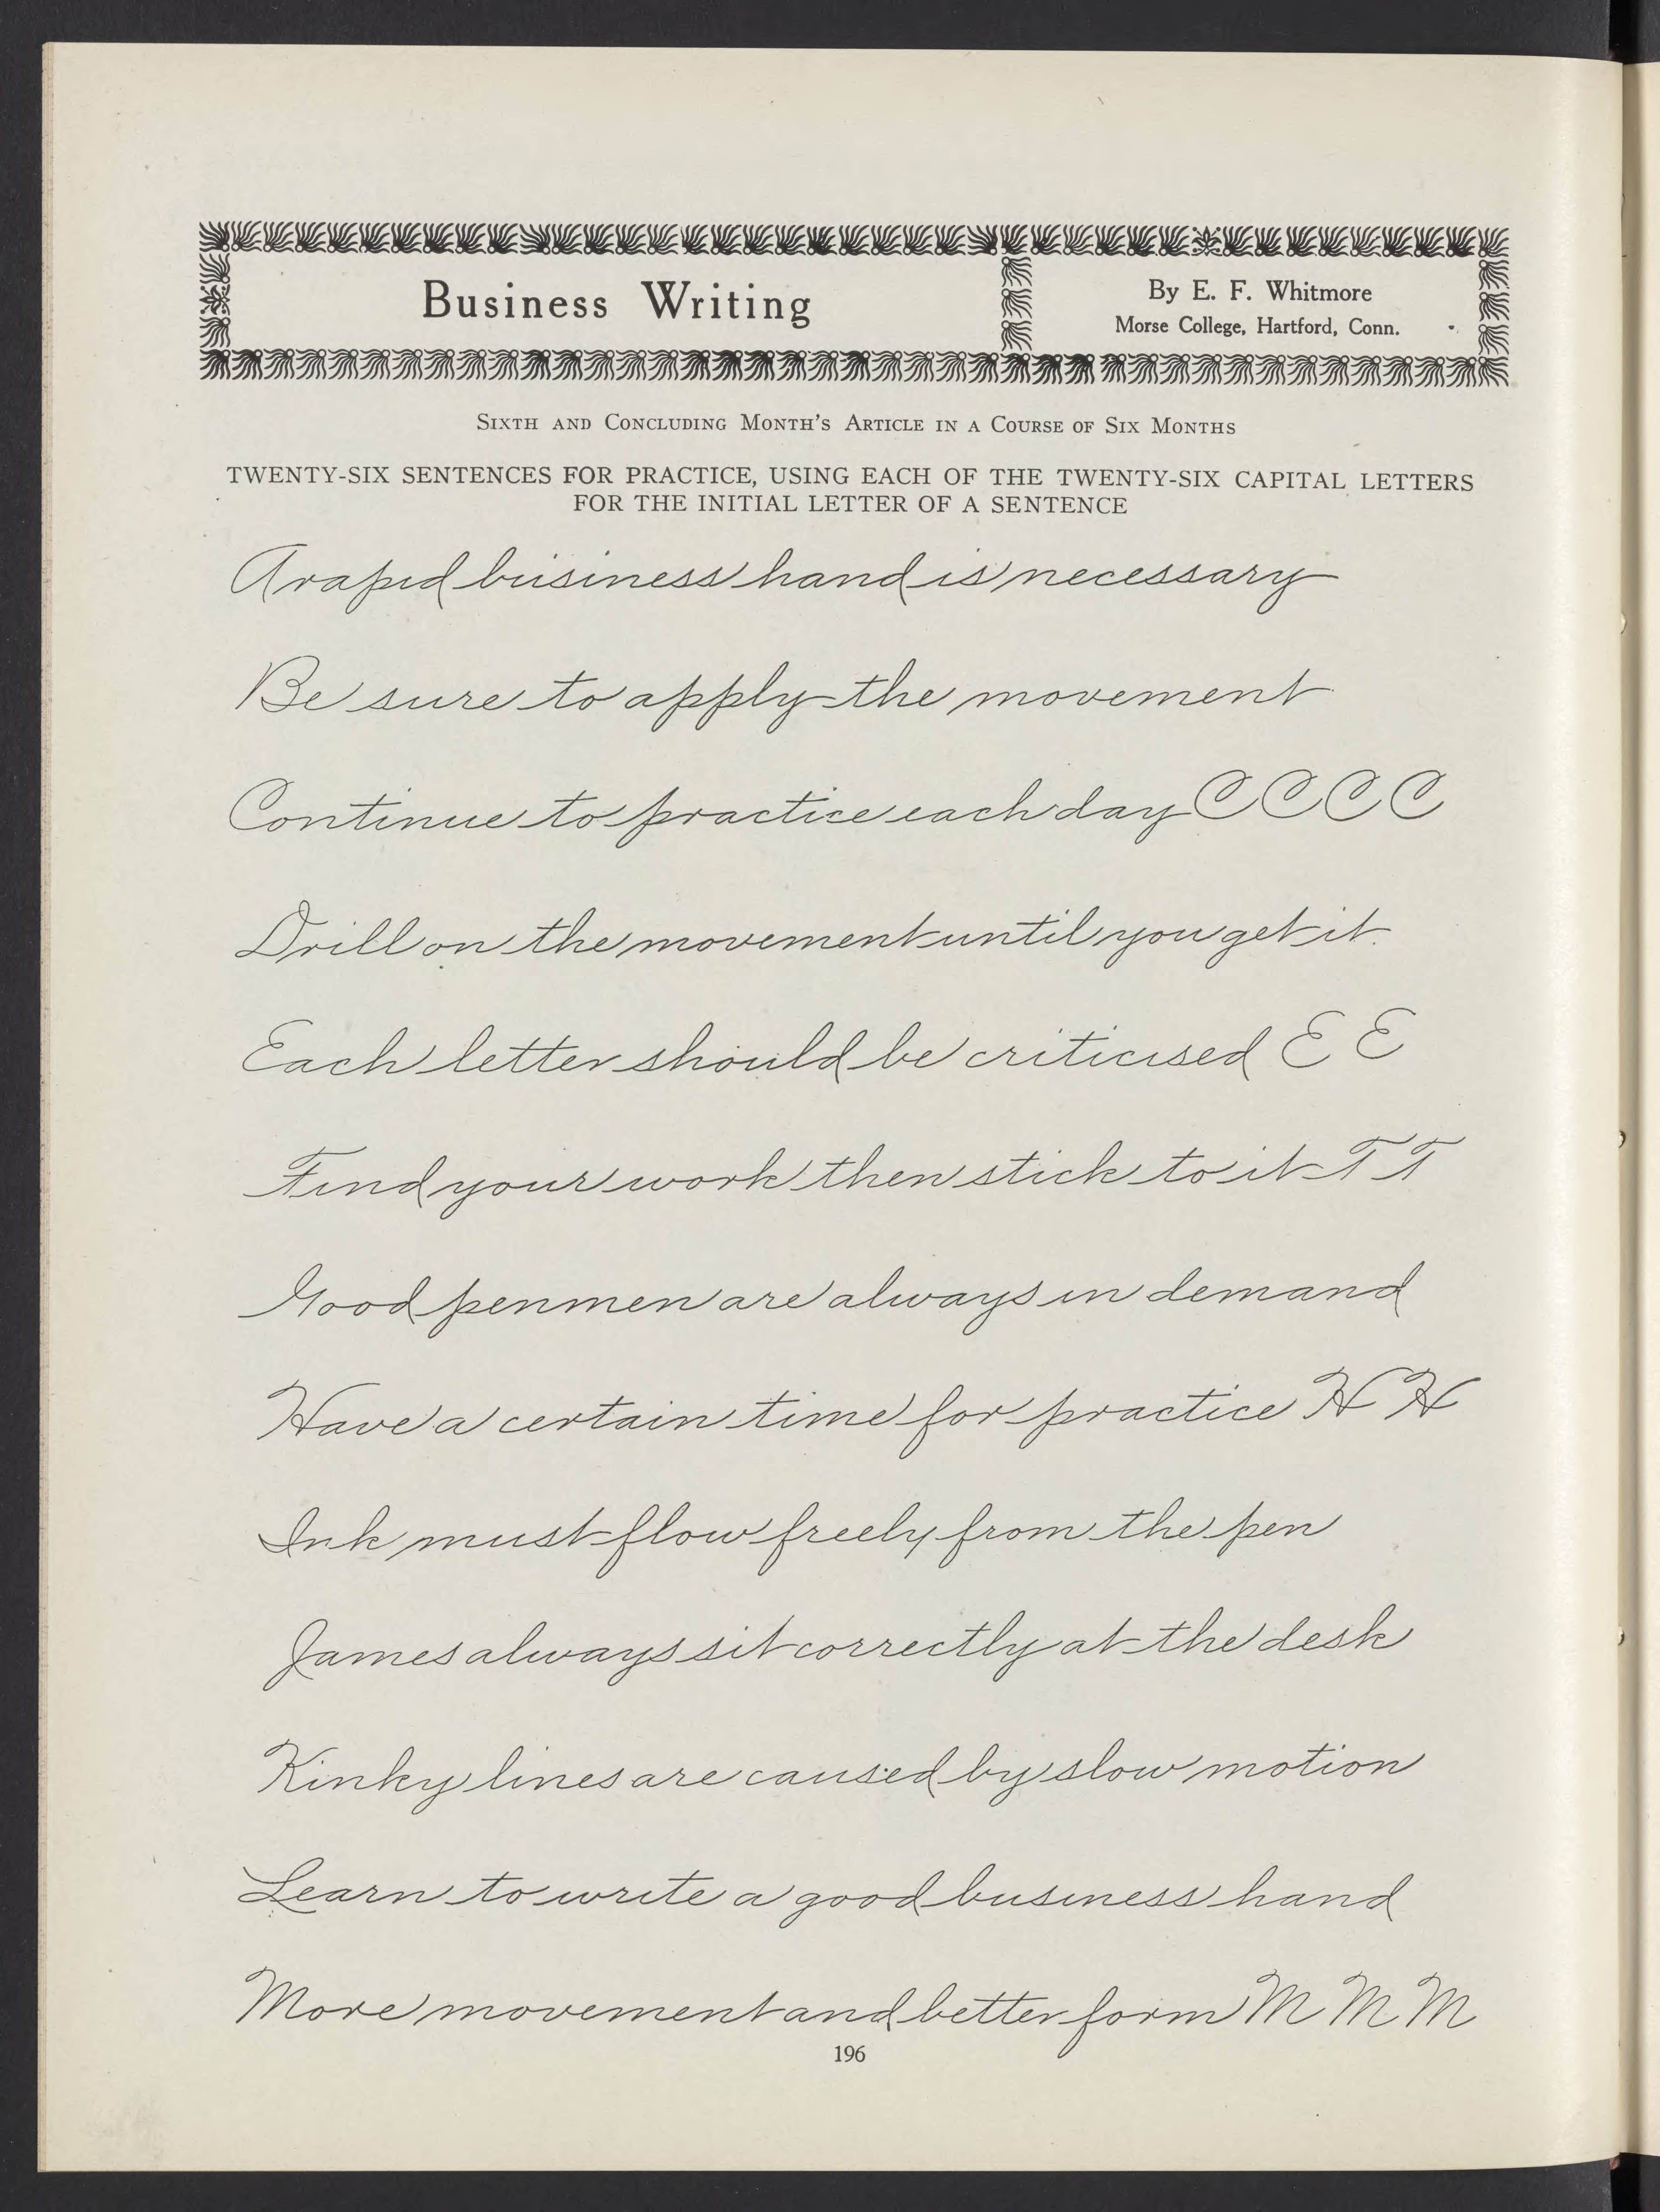 Business Writing
By E. F. Whitmore
Morse College, Hartford, Conn.
Sixth and Concluding Month's Article in a Course of Six Months
TWENTY-SIX SENTENCES FOR PRACTICE, USING EACH OF THE TWENTY-SIX CAPITAL LETTERS
FOR THE INITIAL LETTER OF A SENTENCE
A rapid business hand is necessary
Be sure to apply the movement
Continue to practice each day C C C C
Drill on the movement until you get it.
Each letter should be criticised E E
Find your work then stick to it T T
Good penmen are always in demand
Have a certain time for practice H H
Ink must flow freely from the pen
James always sit correctly at the desk
Kinky lines are caused by slow motion
Learn to write a good business hand
More movement and better form M M M
196